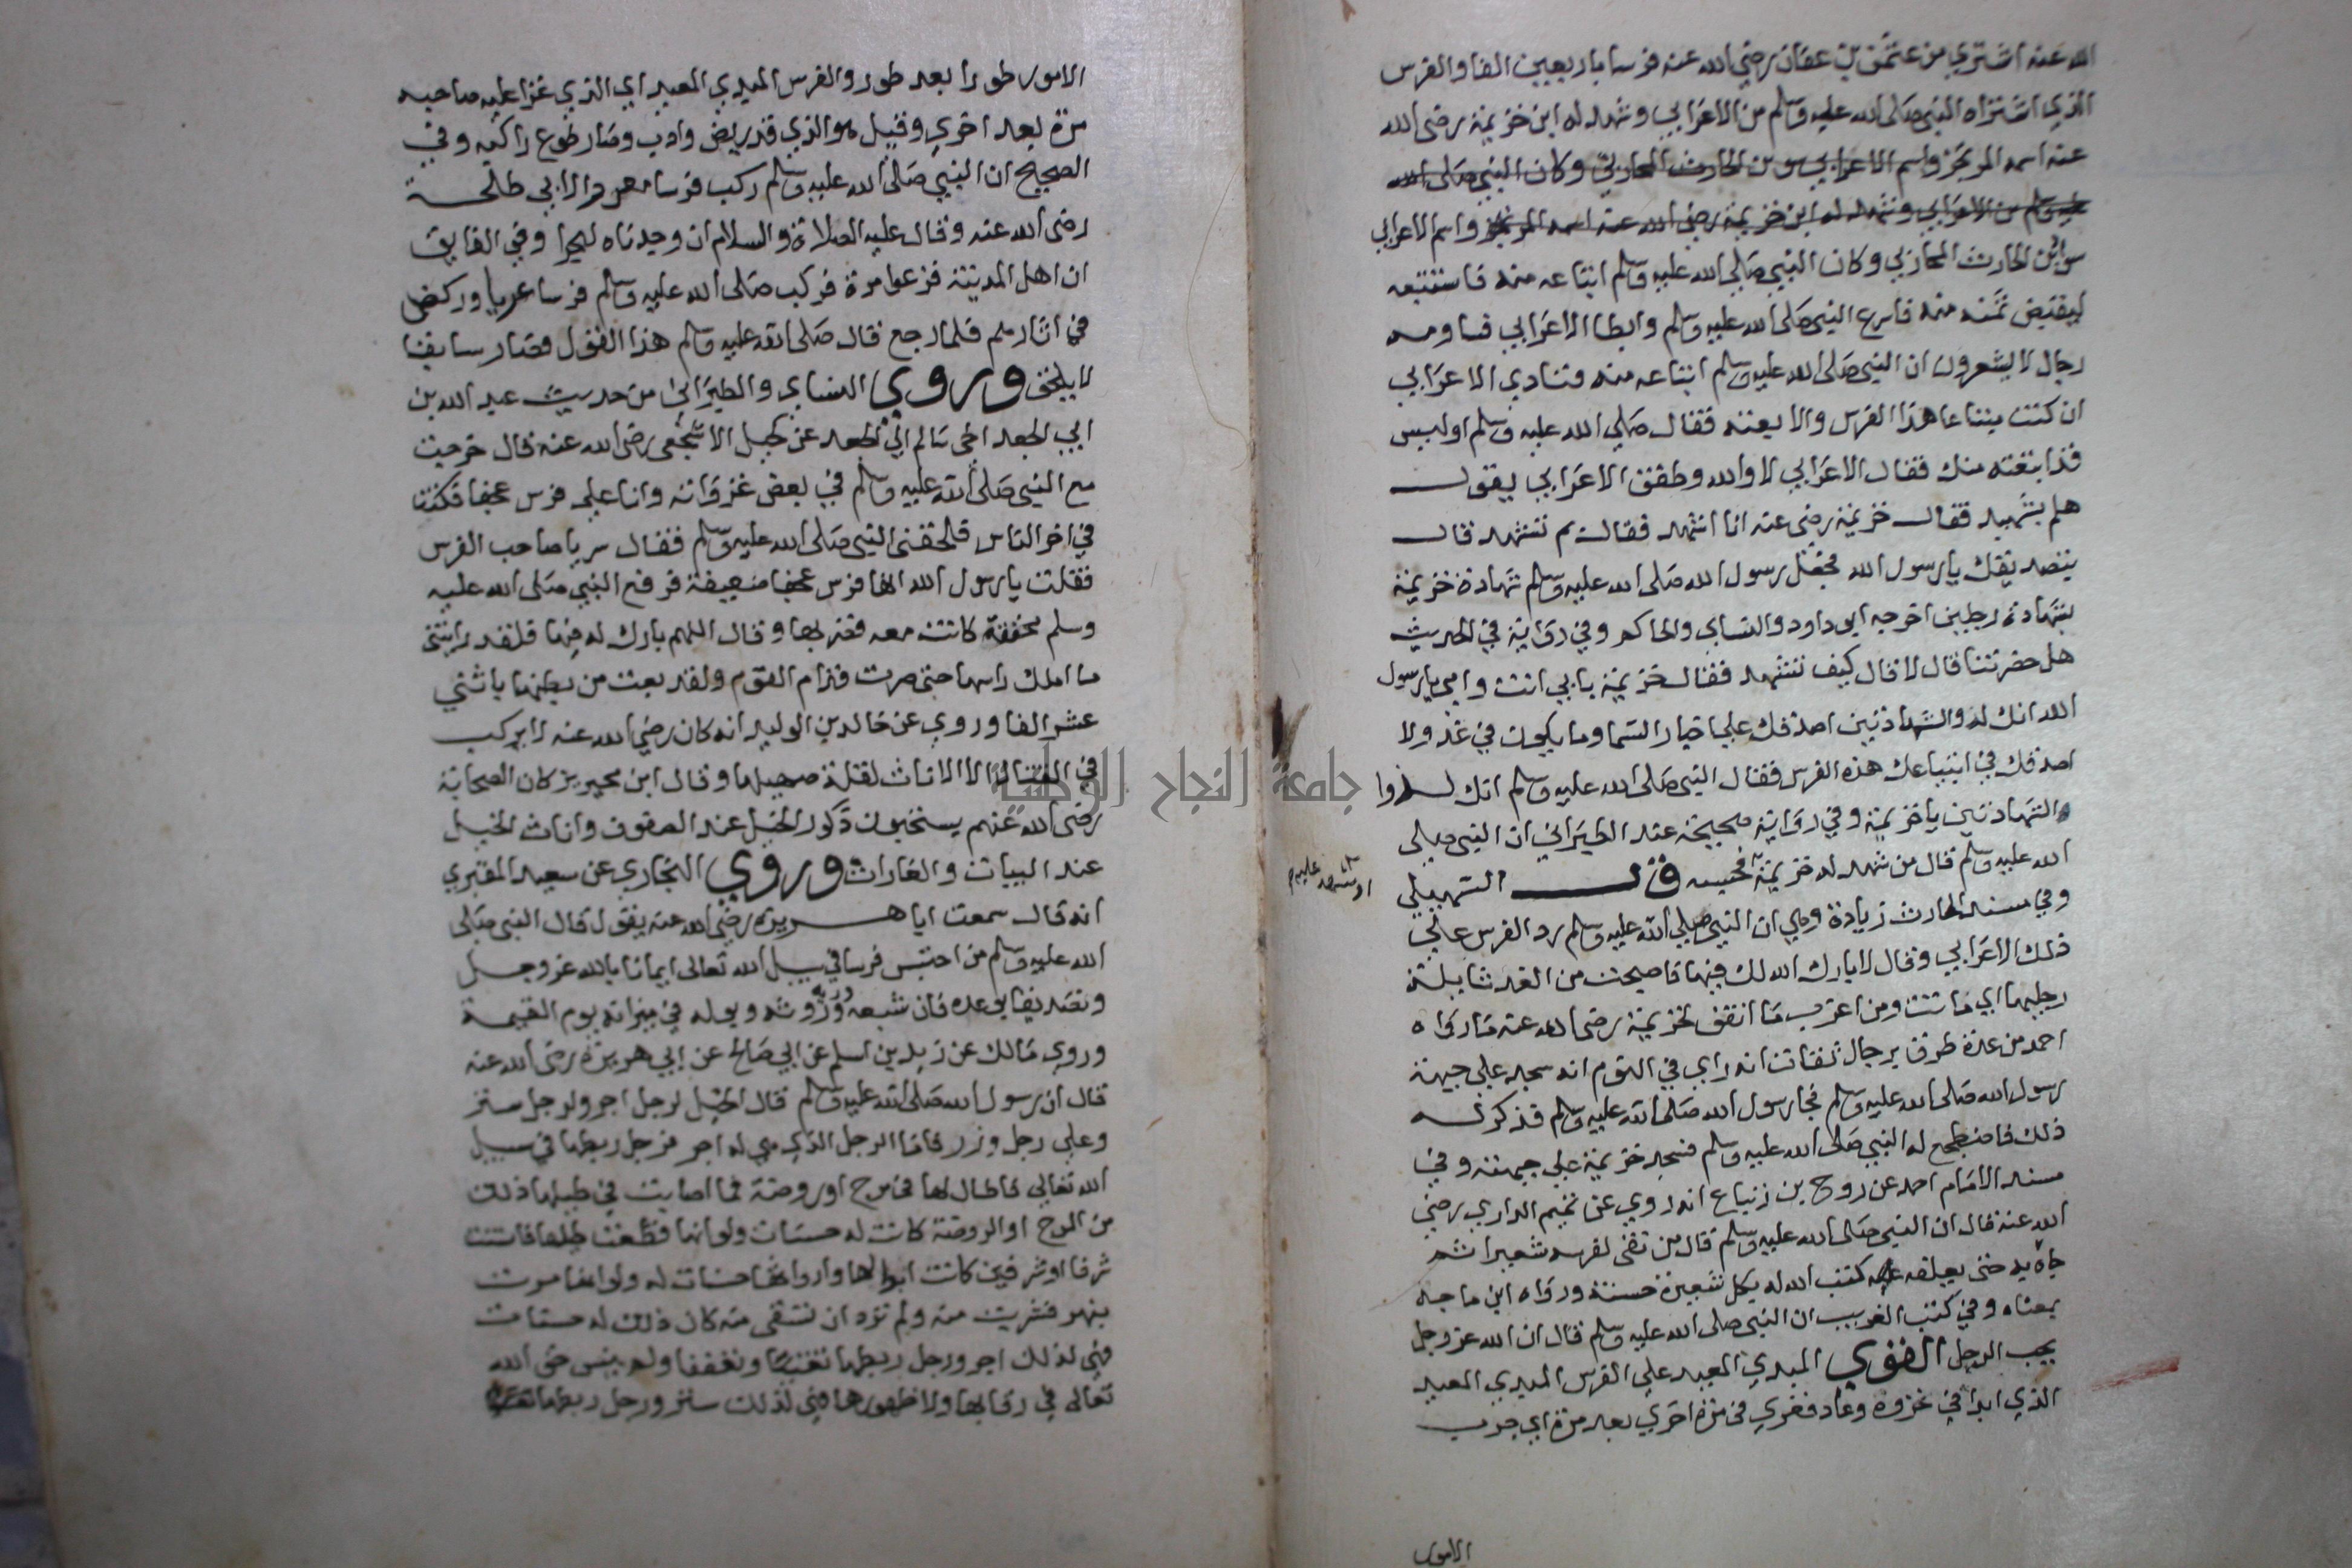 الله عنه اشتري من عثمن بن عفان رضي الله عنه فرسا باربعين الفا والفرس
الذي اشتراه النبي صلى الله عليه وسلم من الاعرابي وشهد له ابن خزيمة رضى الله
عنه اسمه المرتجز واسم الاعرابي سو بن الحارث المحاربي وكان النبي صلى الله
عليه وسلم من الاعرابي وشهد له ابن خزيمة رضى الله عنه اسمه المرتجز واسم الاعرابي
سوا بن الحارث المحاربي وكان النبي صلي الله عليه وسلم ابتاعه منه فاستتبعه
ليقتبض ثمنه منه فاسرع النبي صلى الله عليه وسلم وابطا الاعرابي فساومه
رجال لا يشعرون ان النبي صلى الله عليه وسلم ابتاعه منه فنادي الاعرابي
ان كنت مبتاعا هذا الفرس والا بعته فقال صلي الله عليه وسلم اوليس
قد ابتعته منك فقال الاعرابي لا والله وطفق الاعرابي يقول
هلم بشهيد فقال خزيمة رضى عنه انا اشهد فقال بم تشهد قال
بتصديقك يا رسول الله فجعل رسول الله صلى الله عليه وسلم شهادة خزيمة
بشهادة رجلين اخرجه ابو داود والنساي والحاكم وفي رواية في الحديث
هل حضرتنا قال لا قال كيف تشهد فقال خزيمة بابي انت وامي يا رسول
الله انك اصدقك علي اخبار السما وما يكون في غد ولا
اصدقك في ابتياعك هذه الفرس فقال النبي صلى الله عليه وسلم انك لذوا
الشهادتين يا خزيمة وفي رواية صحيحة عند الطبراني ان النبي صلى
الله عليه وسلم قال من شهد له خزيمة فحسبه قال السهيلي
او شهد عليه
وفي مسند الحارث زيادة وهي ان النبي صلي الله عليه وسلم رد الفرس علي
ذلك الاعرابي وقال لا بارك الله لك فيها فاصبحت من الغد شايلة
رجليها اي ماتت ومن اغرب ما اتفق لخزيمة رضى الله عنه ما رواه
احمد من عدة طرق برجال ثقات انه راي في النوم انه سجد علي جبهة
رسول الله صلى الله عليه وسلم فجا رسول الله صلى الله عليه وسلم فذكر له
ذلك فاضطجع له النبي صلى الله عليه وسلم فسجد خزيمة علي جبهته وفي
مسند الامام احمد عن روح بن زنباع انه روي عن تميم الداري رضى
الله عنه قال ان النبي صلى الله عليه وسلم قال من نقى لفرسه شعيرا ثم
جاه به حتى يعلقه عليه كتب الله له بكل شعيرة حسنة ورواه ابن ماجه
بمعناه وفي كتب الغريب ان النبي صلى الله عليه وسلم قال ان الله عز وجل
يحب الرجل القوي المبدي المعيد علي الفرس المبدي المعيد
الذي ابدا في غزوة وعاد فغزي في مرة اخري بعد مرة اي جرب
الامور
الامور طورا بعد طور والفرس المبدي المعيد اي الذي غزا عليه صاحبه
مرة بعد اخري وقيل هو الذي قد ريض وادب وصار طوع راكبه وفي
الصحيح ان النبي صلى الله عليه وسلم ركب فرسا معرورا لابي طلحة
رضى الله عنه وقال عليه الصلاة والسلام ان وجدناه لبحرا وفي الفايق
ان اهل المدينة فزعوا مرة فركب صلى الله عليه وسلم فرسا عريا وركض
في اثارهم فلما رجع قال صلى الله عليه وسلم هذا الفول فصار سابقا
لا يلحق وروي النساي والطبراني من حديث عبد الله بن
ابي الجعد اخي سالم ابي الجعد عن جميل الاشجعي رضى الله عنه قال خرجت
مع النبي صلى الله عليه وسلم في بعض غزواته وانا علي فرس عجفا فكنت
في اخر الناس فلحقني النبي صلى الله عليه وسلم فقال سر يا صاحب الفرس
فقلت يا رسول الله انها فرس عجفا ضعيفة فرفع النبي صلى الله عليه
وسلم مخفقة كانت معه فضربها وقال اللهم بارك له فيها فلقد رايتني
ما املك راسها حتى صرت قدام القوم ولقد بعت من بطنها باثني
عشر الفا وروي عن خالد بن الوليد انه كان رضي الله عنه لا يركب
في القتال الا الاناث لقلة صهيلها وقال ابن محيريز كان الصحابة
رضى الله عنهم يستحبون ذكور الخيل عند الصفوف واناث الخيل
عند البيات والغارات وروي البخاري عن سعيد المقبري
انه قال سمعت ابا هريرة رضي الله عنه يقول قال النبي صلى
الله عليه وسلم من احتبس فرسا في سبيل الله تعالى ايمانا بالله عز وجل
وتصديقا بوعده فان شبعه وريه وروثه وبوله في ميزانه يوم القيمة
وروي مالك عن زيد بن اسلم عن ابي صالح عن ابي هريرة رضى الله عنه
قال ان رسول الله صلى الله عليه وسلم قال الخيل لرجل اجر ولرجل ستر
وعلي رجل وزر فاما الرجل الذي هي له اجر فرجل ربطها في سبيل
الله تعالي فاطال لها في مرج او روضة فما اصابت في طيلها ذلك
من المرج او الروضة كانت له حسنات ولو انها قطعت طيلها فاستنت
شرفا او شرفين كانت ابوالها وارواثها حسنات له ولو انها مرت
بنهر فشربت منه ولم ترد ان تسقى منه كان ذلك له حسنات
فهي لذلك اجر ورجل ربطها تغنيا وتعففا ولم ينس حق الله
تعالى في رقابها ولا ظهورها فهي لذلك ستر ورجل ربطها
جامعة النجاح الوطنية